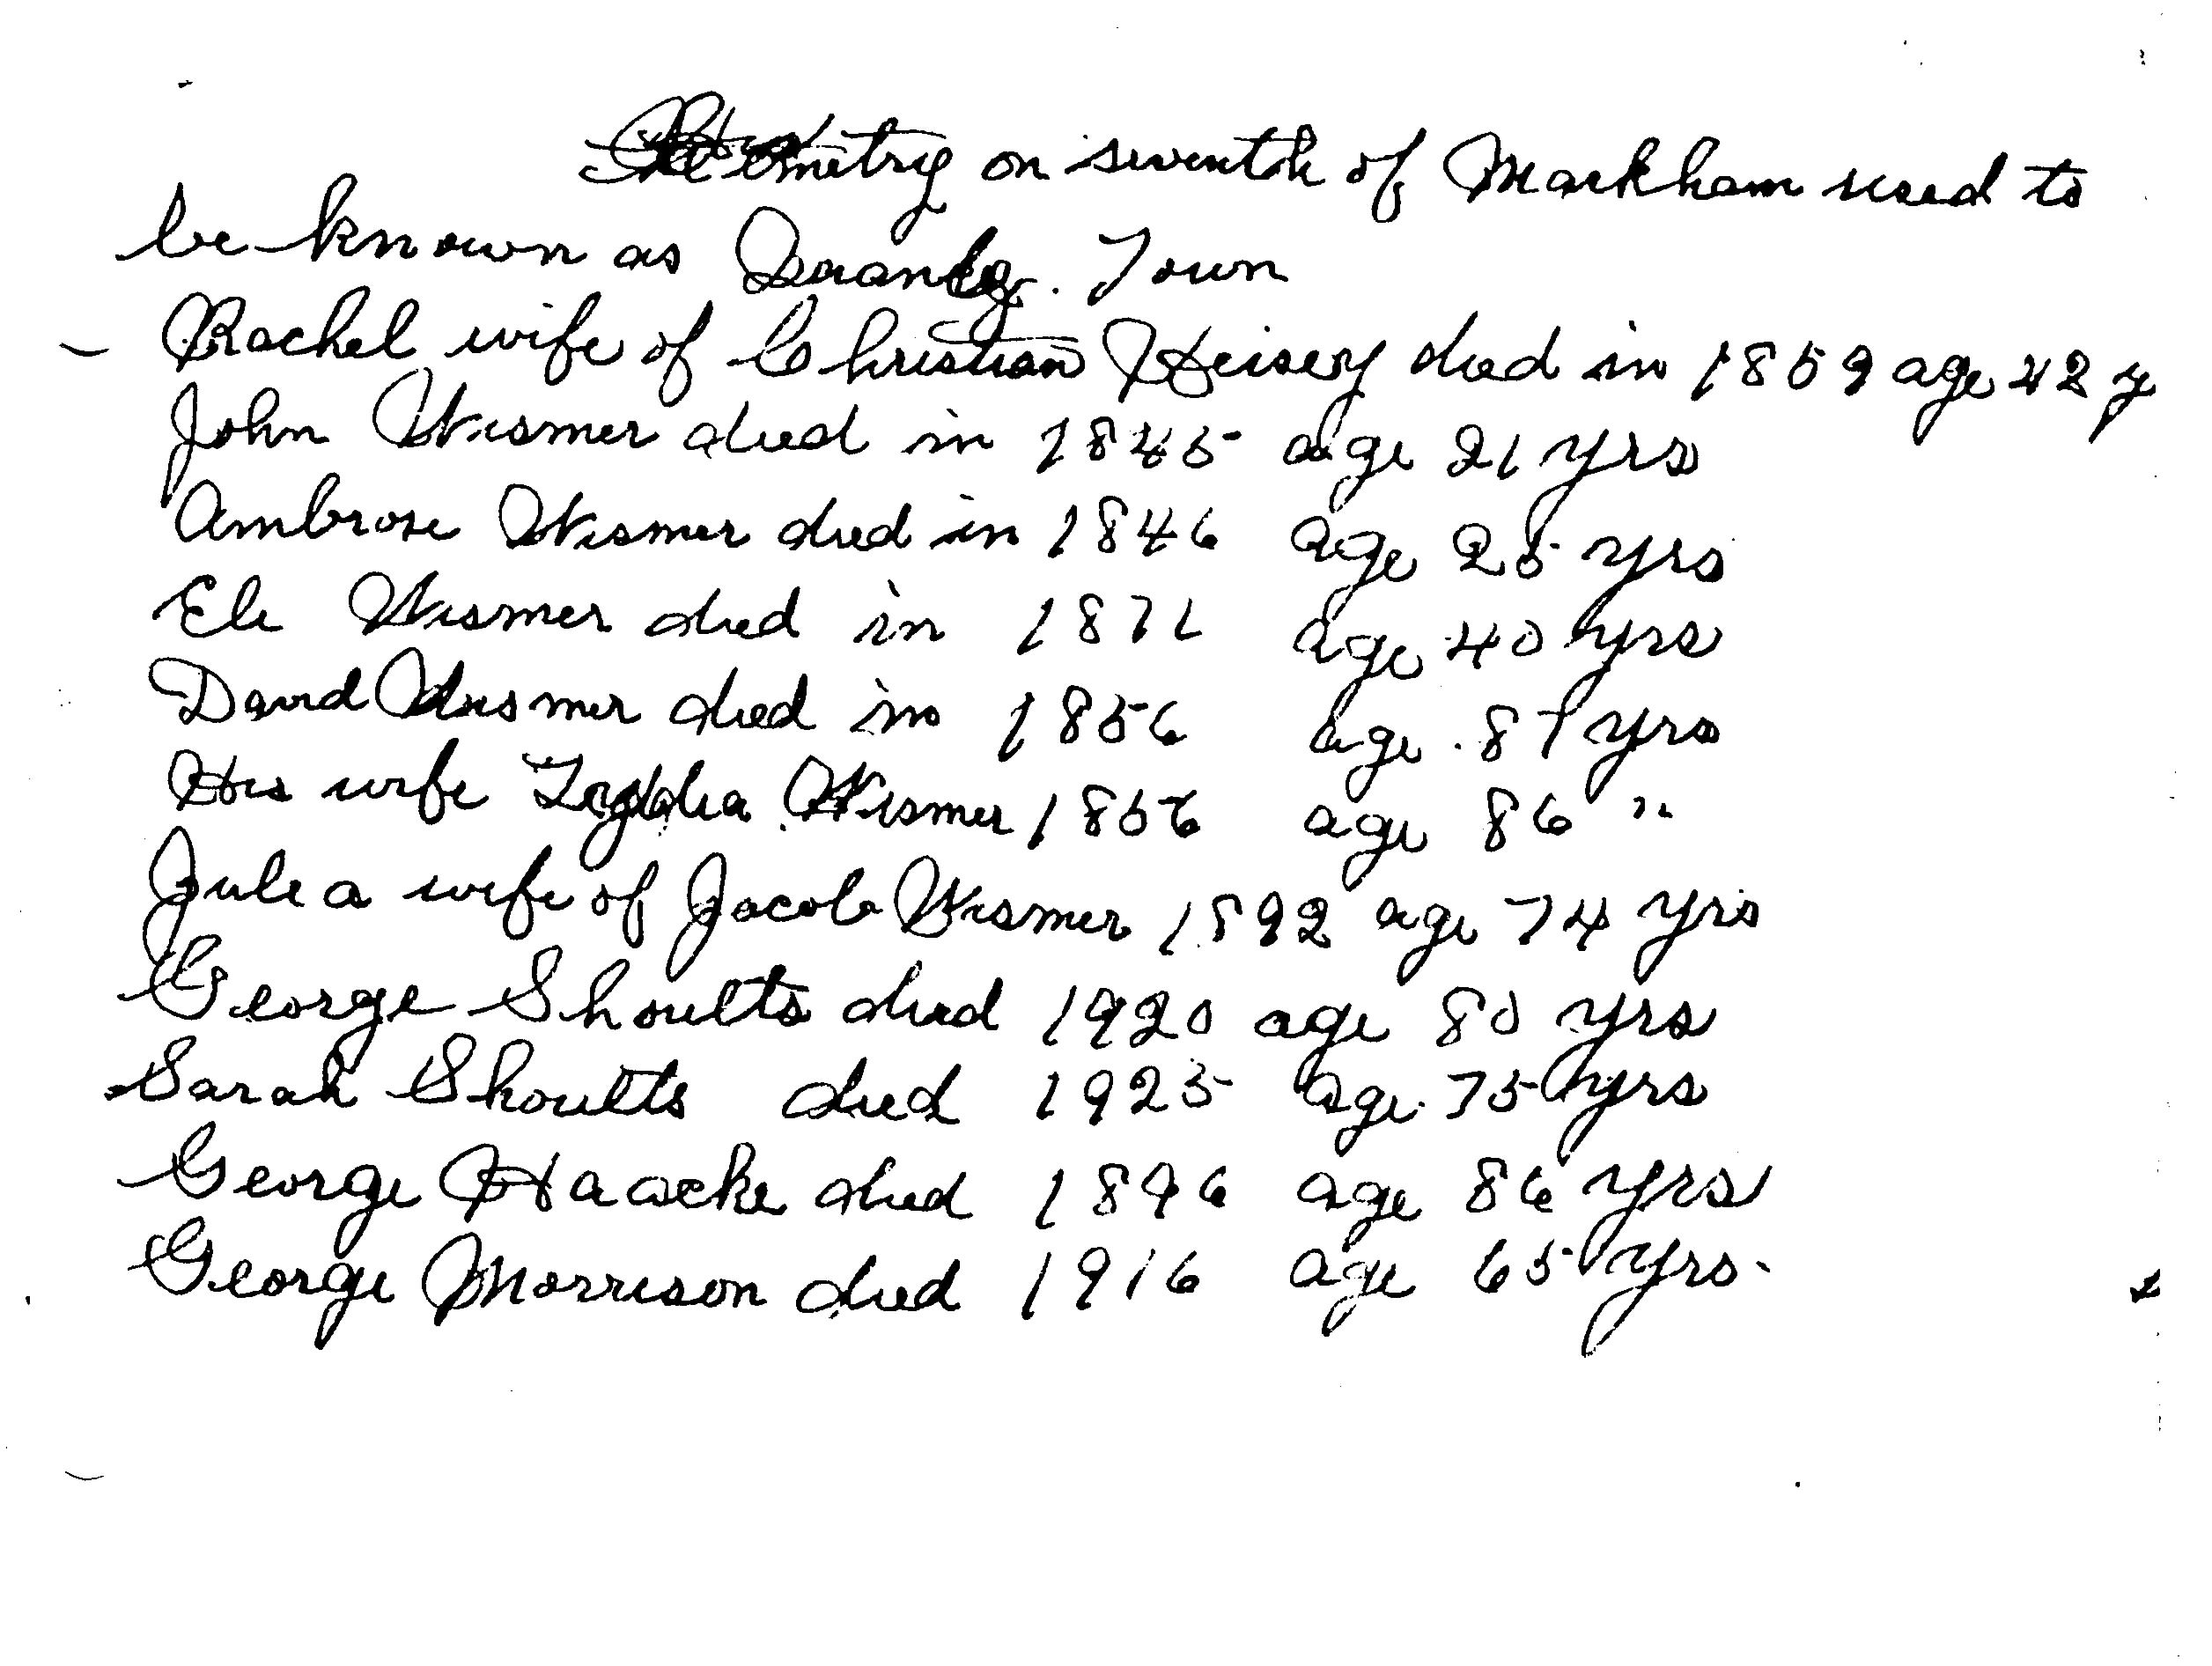 Cemetry on seventh of Markham used to
be known as Town
Rachel wife of Christian Heisey died in 1859 age 42 y
John Wismer died in 1845 age 21 yrs
Ambrose Wismer died in 1846 age 25 yrs
Eli Wismer died in 1871 age 40 yrs
David Wismer died in 1856 age 87 yrs
His wife Lydia Wismer 1856 age 86 "
Julia wife of Jacob Wismer 1892 age 74 yrs
George Shoults died 1920 age 80 yrs
Sarah Shoults died 1925 age 75 yrs
George Haacke died 1896 age 86 yrs
George Morrison died 1916 age 65 yrs.